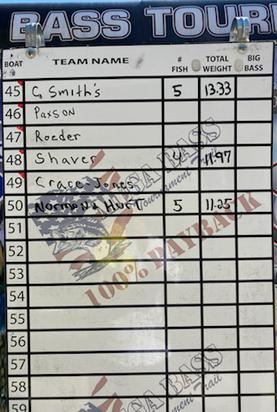 BASS TOUR
BOAT # TEAM NAME # FISH TOTAL WEIGHT BIG BASS
45 G Smith's 5 13.33
46 Paxson
47 Roeder
48 Shaver 4 11.97
49 Crace-Jones
50 Norman & Hurt 5 11.25
51
52
53
54
55
56
57
58
59
USA BASS
Tournament Trail
100% PAYBACK
USA BASS
Tournament Trail